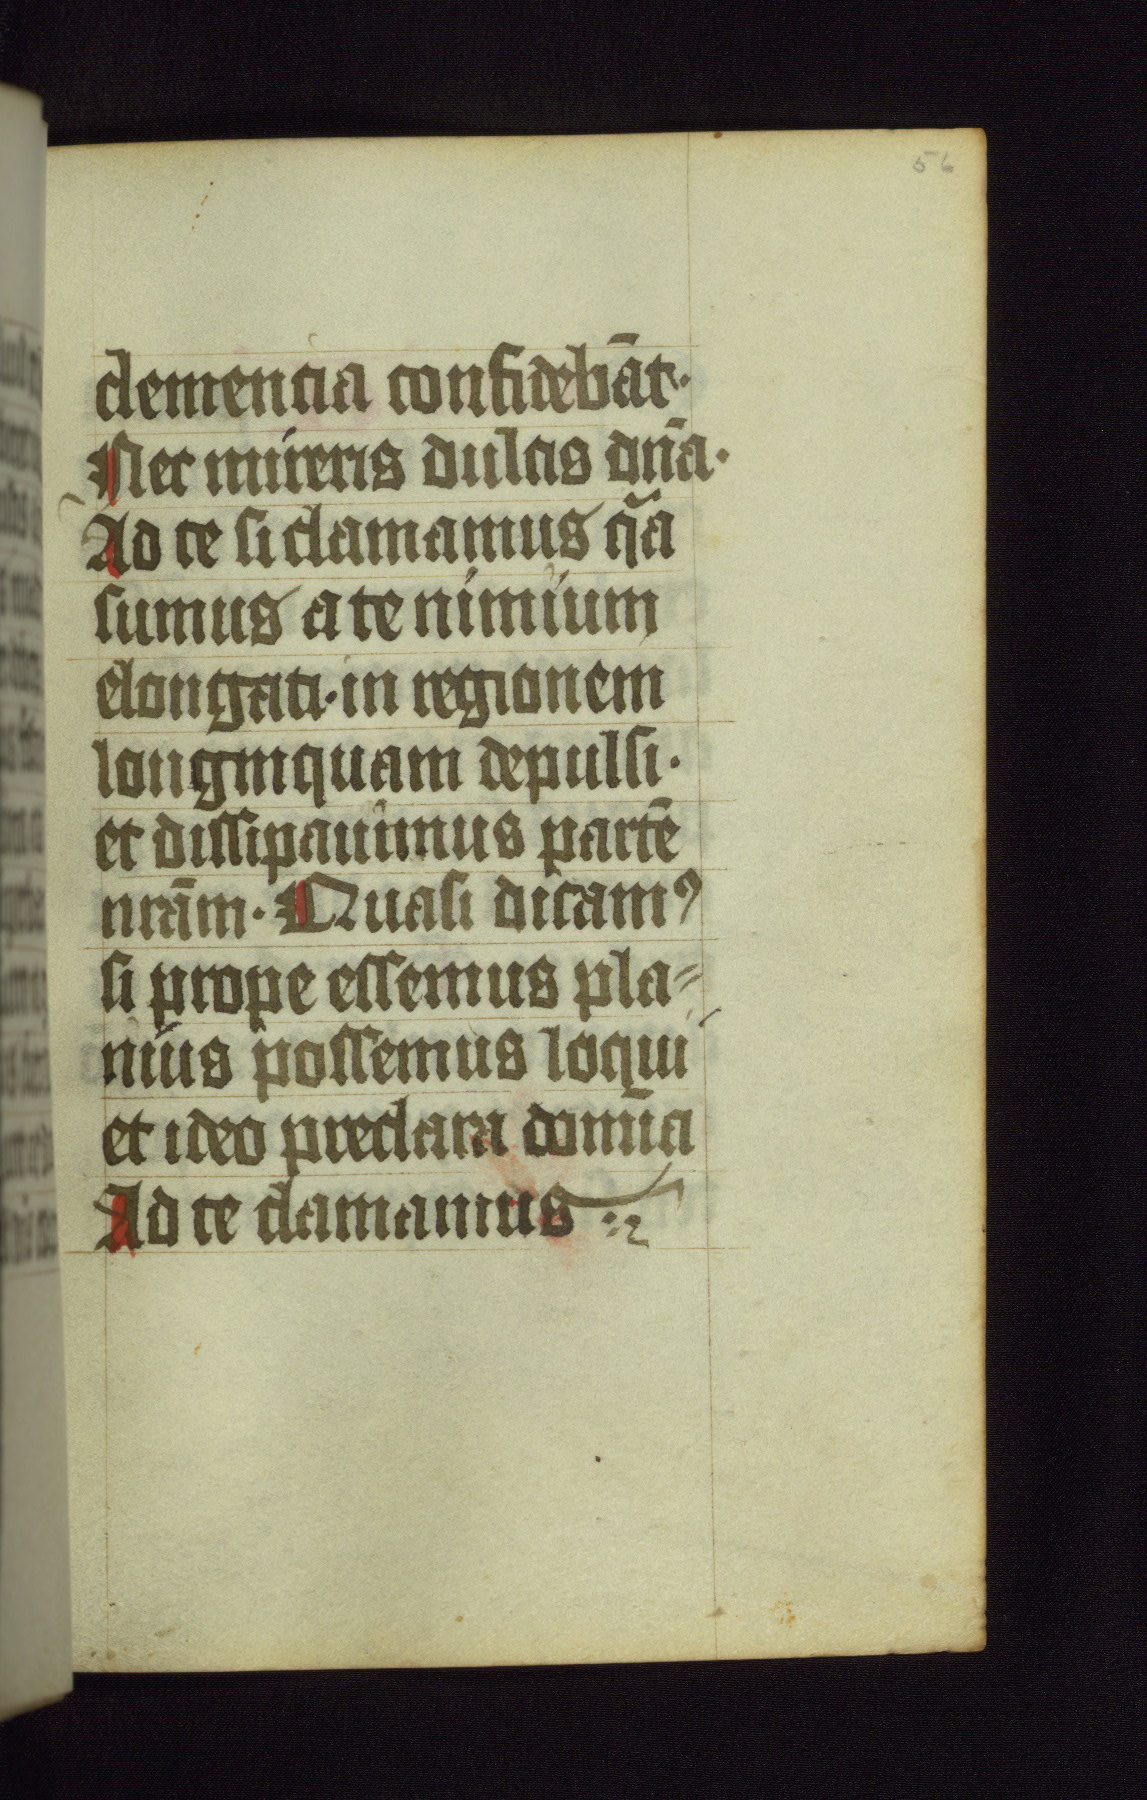 56
clementia confidebāt·
Nec mireris dulcis dn̄a·
Ad te si clamamus q̄a
sumus a te nimium
elongati· in regionem
longinquam depulsi·
et dissipauimus partē
nrām· Quasi dicamꝰ
si prope essemus pla⸗
nius possemus loqui
et ideo preclara domīa
Ad te clamamus